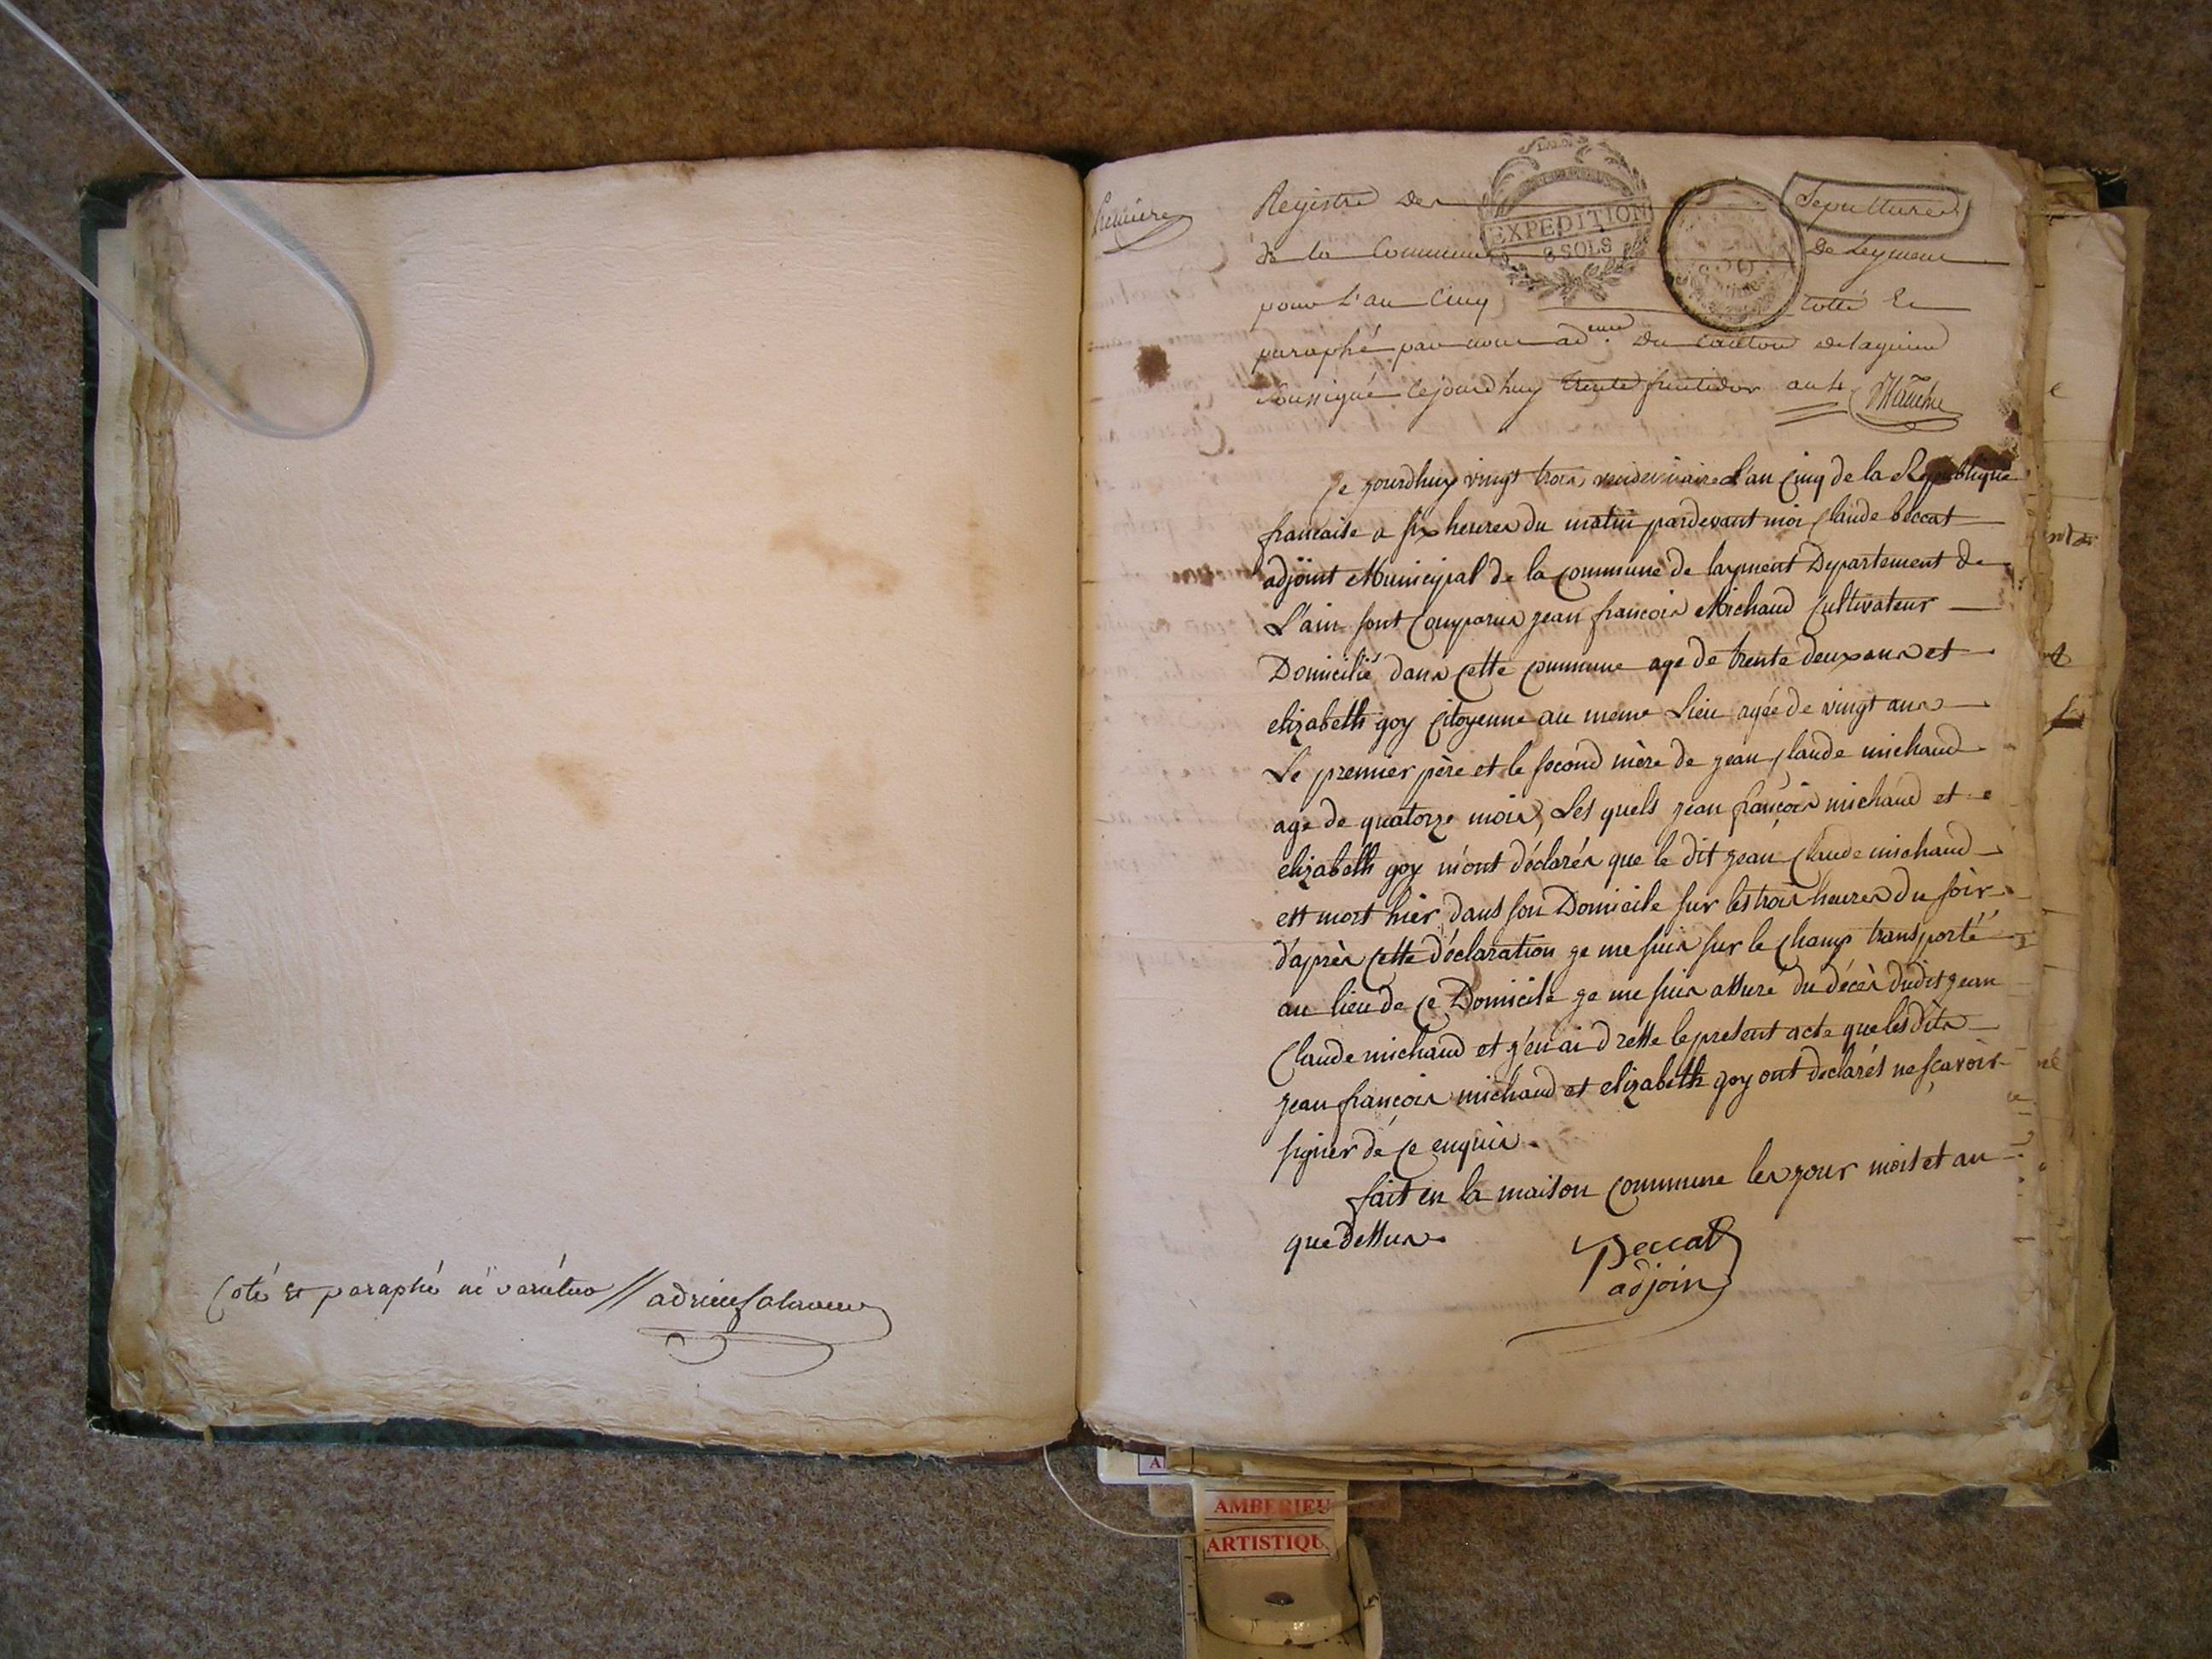 Coté et paraphé ne varietur //
Premiere
Registre des Sepultures
EXPEDITION
8 SOLS
de la Commune de Leyment
pour L'an Cinq cotté et
paraphé par nous ad. du canton de lagnieu
soussigné cejourd'huy trente fructidor an 4
Ce jourdhuy vingt trois vendemiaire l'an Cinq de la Republique
francaise a six heures du matin pardevant moi Claude beccat
adjoint Municipal de la Commune de layment Departement de
L'ain sont Comparus jean francois Michaud Cultivateur
Domicilié dans Cette Commune age de trente deux ans et
elizabeth goy Citoyenne au meme Lieu agée de vingt ans
Le premier père et le second mère de jean Claude michaud
age de quatorze mois, Les quels jean françois michaud et
elizabeth goy m'ont déclarés que le dit jean Claude michaud
est mort hier dans son Domicile sur les trois heures du soir
d'après Cette déclaration je me suis sur le Champ transporté
au lieu de Ce Domicile je me suis assuré du décès dudit jean
Claude michaud et j'en ai dressé le present acte que les dits
jean francois michaud et elizabeth goy ont declarés ne sçavoir
signer de Ce enquis
fait en la maison Commune les jour mois et an
que dessus.
Beccat
adjoin
AMBERIEU
ARTISTIQU